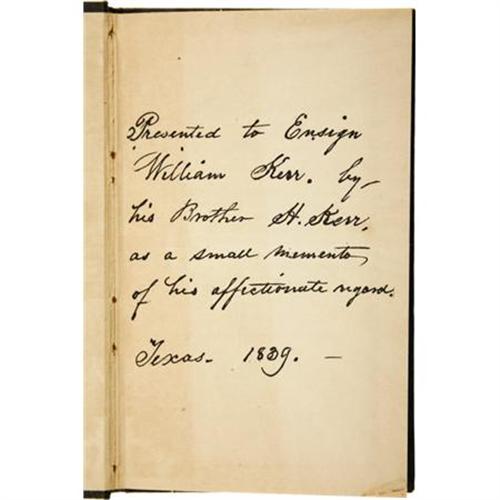 Presented to Ensign
William Kerr. by-
his Brother H. Kerr,
as a small memento,
of his affectionate regard.
Texas. 1839. -